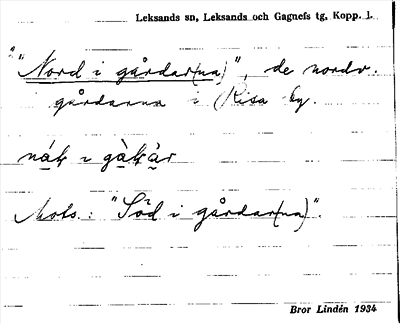 Leksands sn, Leksands och Gagnefs tg, Kopp. l.
"Nord i gårdar(na)", de nordv.
gårdarna i Risa by.
nák i gàkàr
Mots.: "Söd i gårdar(na)".
Bror Lindén 1934